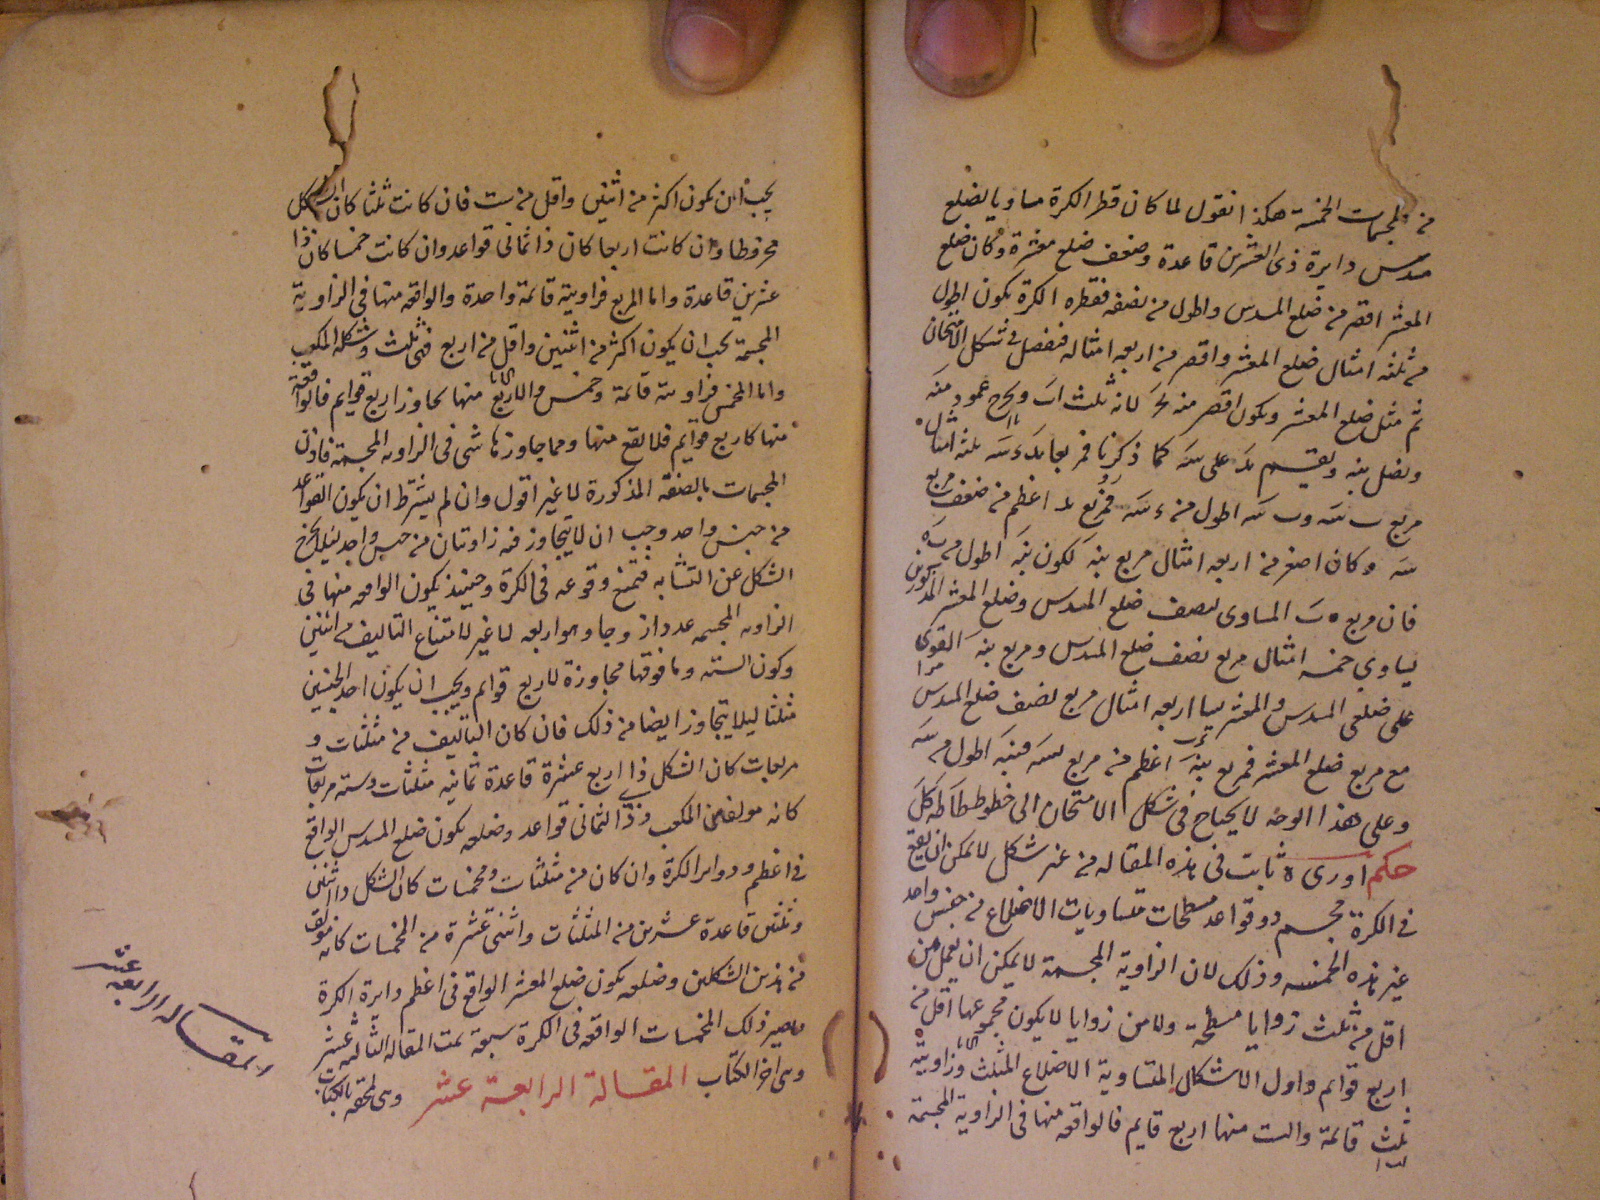 من المجسمات الخمسة هكذا نقول لما كان قطر الكرة مساويا لضلع
مسدس دايرة ذى العشرين قاعدة وضعف ضلع معشرة وكان ضلع
المعشر اقصر من ضلع المسدس واطول من نصفه فقطره الكرة يكون اطول
من ثلثه امثال ضلع المعشر واقصر من اربعه امثاله فنفصل فى شكل الامتحان
ثم مثل ضلع المعشر ويكون اقصر منه لانه ثلث اب ويخرج عمود منه
ونصل بنه ونقسم على سه كما ذكرنا فمربعا ثلثه امثال
مربع ب سه وب سه اطول من ء سه فمربع اعظم من ضعف مربع
سه وكان اصغر من اربعه امثال مربع بنه لكون بنه اطول من
فان مربع المساوى لنصف ضلع المسدس وضلع المعشر المذكورين
يساوى خمسه امثال مربع نصف ضلع المسدس ومربع بنه القوى
على ضلعى المسدس والمعشر يساوى اربعه امثال مربع نصف ضلع المسدس
مع مربع ضلع المعشر فمربع بنه اعظم من مربع سه فبنه اطول من سه
وعلى هذا الوجه لا يحتاج فى شكل الامتحان الى خطوط طا طه كل
حكم اورده ثابت فى هذه المقاله من غير شكل لا يمكن ان يقع
فى الكرة مجسم ذو قواعد مسطحات متساويات الاضلاع من جنس واحد
غير هذه الخمسه وذلك لان الزاوية المجسمة لا يمكن ان يعمل من
اقل من ثلث زوايا مسطحة ولا من زوايا لا يكون مجموعها اقل من
اربع قوايم واول الاشكال المتساوية الاضلاع المثلث وزاويته
ثلثا قائمة والست منها اربع قوايم فالواقعه منها فى الزاوية المجسمة
يجب ان يكون اكثر من اثنين واقل من ست فان كانت ثلثا كان الشكل
مخروطا وان كانت اربعا كان ذا ثمانى قواعد وان كانت خمسا كان ذا
عشرين قاعدة واما المربع فزاويته قائمة واحدة والواقعه منها فى الزاوية
المجسمة يجب ان يكون اكثر من اثنين واقل من اربع فهى ثلث وشكله المكعب
واما المخمس فزاويته قائمة وخمس والاربع منها يجاوز اربع قوايم فالواقعة
منها كاربع قوايم فلا يقع منها ومما جاوزها شى فى الزاويه المجسمة فاذن
المجسمات بالصفة المذكورة لا غير اقول وان لم يشترط ان يكون القواعد
من جنس واحد وجب ان لا يتجاوز فيه زاويتان من جنس واحد ليلا يخرج
الشكل عن التشابه فيمتنع وقوعه فى الكرة وحينيذ يكون الواقعه منها فى
الزاويه المجسمه عدد ازوجا وهو اربعه لا غير لامتناع التاليف من اثنين
وكون السته وما فوقها مجاوزة لاربع قوايم ويجب ان يكون احد الجنسين
مثلثا ليلا يتجاوز ايضا من ذلك فان كان التاليف من مثلثات و
مربعات كان الشكل ذا اربع عشرة قاعدة ثمانيه مثلثات وسته مربعات
كانه مولف من المكعب وذى الثمانى قواعد وضلعه يكون ضلع المسدس الواقع
فى اعظم دواير الكرة وان كان من مثلثات ومخمسات كان الشكل ذا اثنتين
وثلثين قاعدة عشرين من المثلثات واثنتى عشرة من المخمسات كانه مولف
من هذين الشكلين وضلعه يكون ضلع المعشر الواقع فى اعظم دايرة الكرة
فيصير ذلك المجسمات الواقعه فى الكرة سبعة تمت المقاله الثالثه عشر
وهى اخر الكتاب المقالة الرابعة عشر وهى ملحقه بالكتاب
المقاله الرابعه عشر